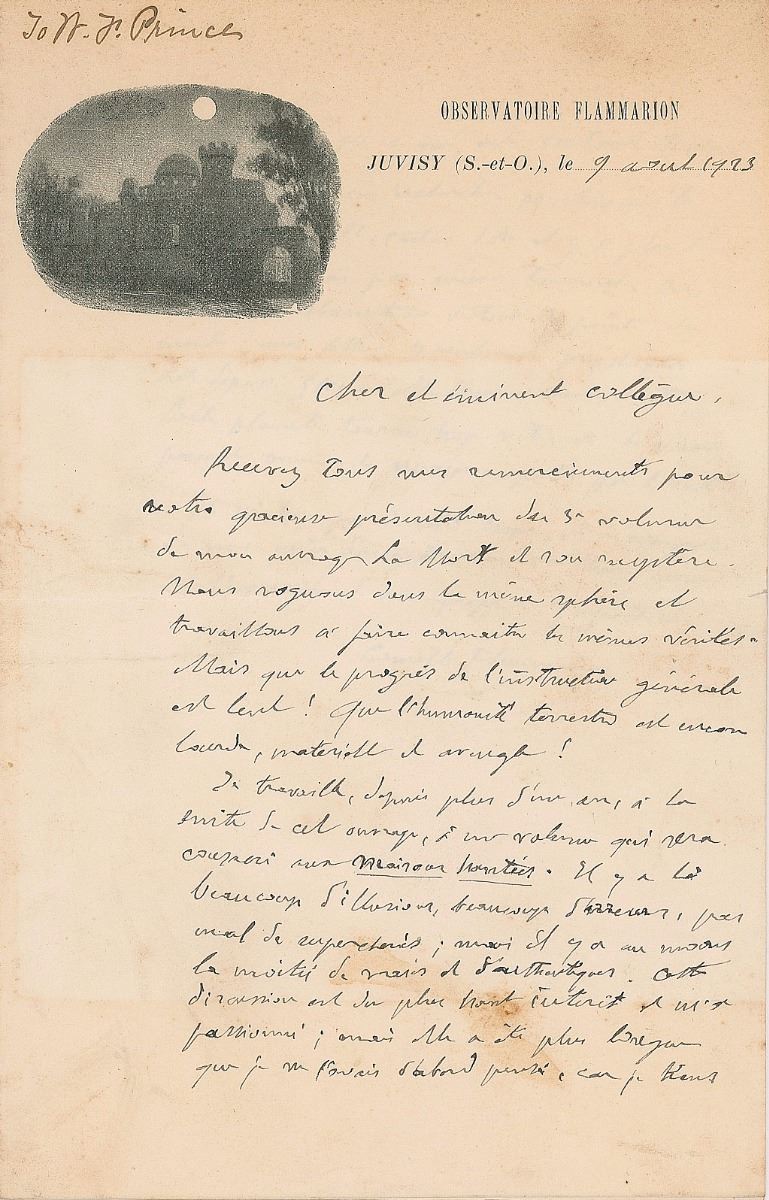 To W. F. Prince
OBSERVATOIRE FLAMMARION
JUVISY (S.-et-O.), le 9 avril 1923
Cher et éminent collègue,
Recevez tous mes remerciements pour
votre gracieuse présentation du 3e volume
de mon ouvrage La Mort et son mystère.
Nous voguons dans la même sphère et
travaillons à faire connaître les mêmes vérités.
Mais que le progrès de l'instruction générale
est lent ! Que l'humanité terrestre est encore
lourde, matérielle et aveugle !
Je travaille, depuis plus d'un an, à la
suite de cet ouvrage, à un volume qui sera
consacré aux Maisons hantées. Il y a là
beaucoup d'illusions, beaucoup d'erreurs, pas
mal de supercheries ; mais il y a au moins
la moitié de vrais et d'authentiques. Cette
discussion est du plus haut intérêt et m'a
passionné ; mais elle a été plus longue
que je ne l'avais d'abord pensé, car je tiens